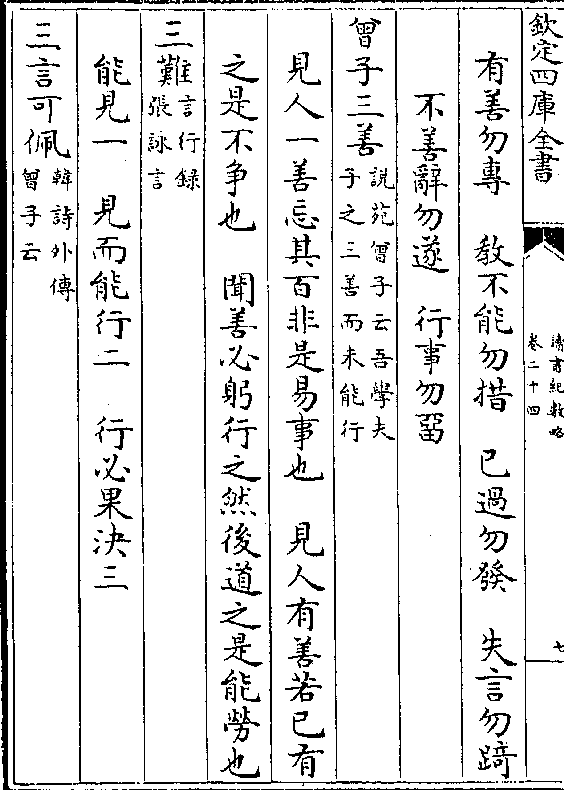 欽定四庫全書
讀書紀數略
卷二十四
七
有善勿專　教不能勿措　已過勿發　失言勿踦
不善辭勿遂　行事勿畱
曾子三善
說苑曾子云吾學夫
子之三善而未能行
見人一善忘其百非是易事也　見人有善若已有
之是不爭也　聞善必躬行之然後道之是能勞也
三難
言行録
張詠言
能見一　見而能行二　行必果決三
三言可佩
韓詩外傳
曾子云